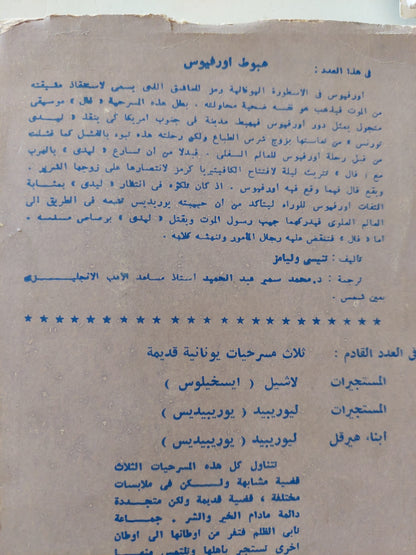 في هذا العدد : هبوط اورفيوس
اورفيوس في الاسطورة اليونانية رمز للعاشق الذي يسعى لاستنقاذ عشيقته
من الموت فيذهب هو نفسه ضحية محاولته . بطل هذه المسرحية « فال » موسيقى
متجول يمثل دور اورفيوس فيهبط مدينة في جنوب امريكا كي ينقذ « ليدى
تورنس » من تعاستها بزوج شرس الطباع ولكن رحلته هذه تبوء بالفشل كما فشلت
من قبل رحلة اورفيوس للعالم السفلى . فبدلا من أن تسارع « ليدى » بالهرب
مع « فال » تتريث ليلة لافتتاح الكافيتيريا كرمز لانتصارها على زوجها الشرير .
ويقع فال فيما وقع فيه اورفيوس . اذ كان تلكؤه في انتظار « ليدى » بمثابة
التفات اورفيوس للوراء ليتأكد من أن حبيبته يوريديس تتبعه في الطريق الى
العالم العلوى فيدركهما جيب رسول الموت ويقتل « ليدى » برصاص مسدسه .
اما « فال » فتنقض عليه رجال المأمور وتنهشه كلابه .
تأليف : تنيسى وليامز
ترجمة : د. محمد سمير عبد الحميد أستاذ مساعد الأدب الانجليزى
بعين شمس .
★ ★ ★ ★ ★ ★ ★ ★ ★ ★ ★ ★ ★ ★ ★ ★ ★ ★ ★ ★ ★ ★
في العدد القادم : ثلاث مسرحيات يونانية قديمة
المستجيرات لاشيل ( ايسخيلوس )
المستجيرات ليوريبيد ( يوريبيديس )
أبناء هيرقل ليوريبيد ( يوريبيديس )
تتناول كل هذه المسرحيات الثلاث
قضية مشابهة ولكن في ملابسات
مختلفة ، قضية قديمة ولكن متجددة
دائمة مادام الخير والشر . جماعة
تأبى الظلم فتفر من أوطانها الى أوطان
أخرى تستجير بأهلها وتلتمس منهما